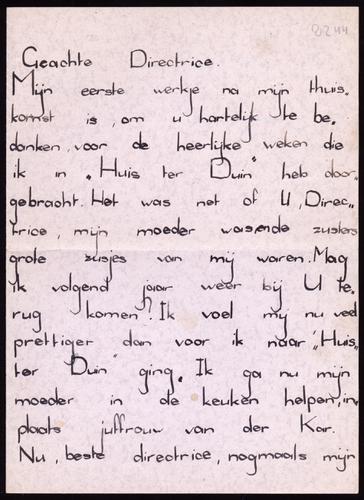 2244
Geachte Directrice.
Mijn eerste werkje na mijn thuis„
komst is, om u hartelijk te be„
danken, voor de heerlijke weken die
ik in „Huis ter Duin" heb door„
gebracht. Het was net of U, Direc„
trice, mijn moeder was, en de zusters
grote zusjes van mij waren. Mag
ik volgend jaar weer bij U te„
rug komen? Ik voel mij nu veel
prettiger dan voor ik naar „Huis„
ter Duin" ging. Ik ga nu mijn
moeder in de keuken helpen, in„
plaats juffrouw van der Kar.
Nu, beste directrice, nogmaals mijn